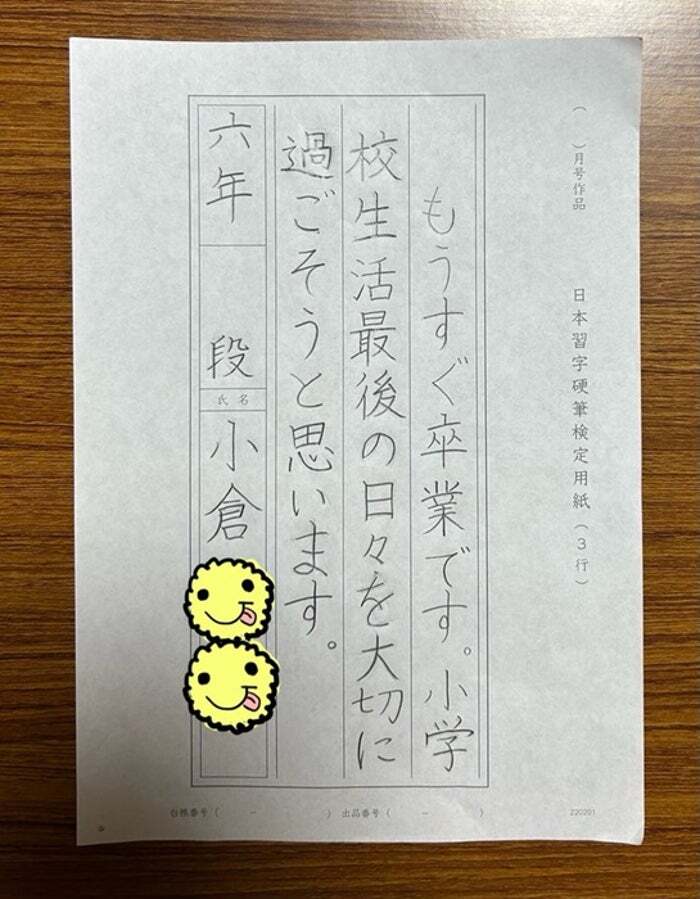 （　　）月号作品　日本習字硬筆検定用紙（３行）
もうすぐ卒業です。小学
校生活最後の日々を大切に
過ごそうと思います。
六年　段　氏名　小倉
台帳番号（　－　）出品番号（　－　）
220201